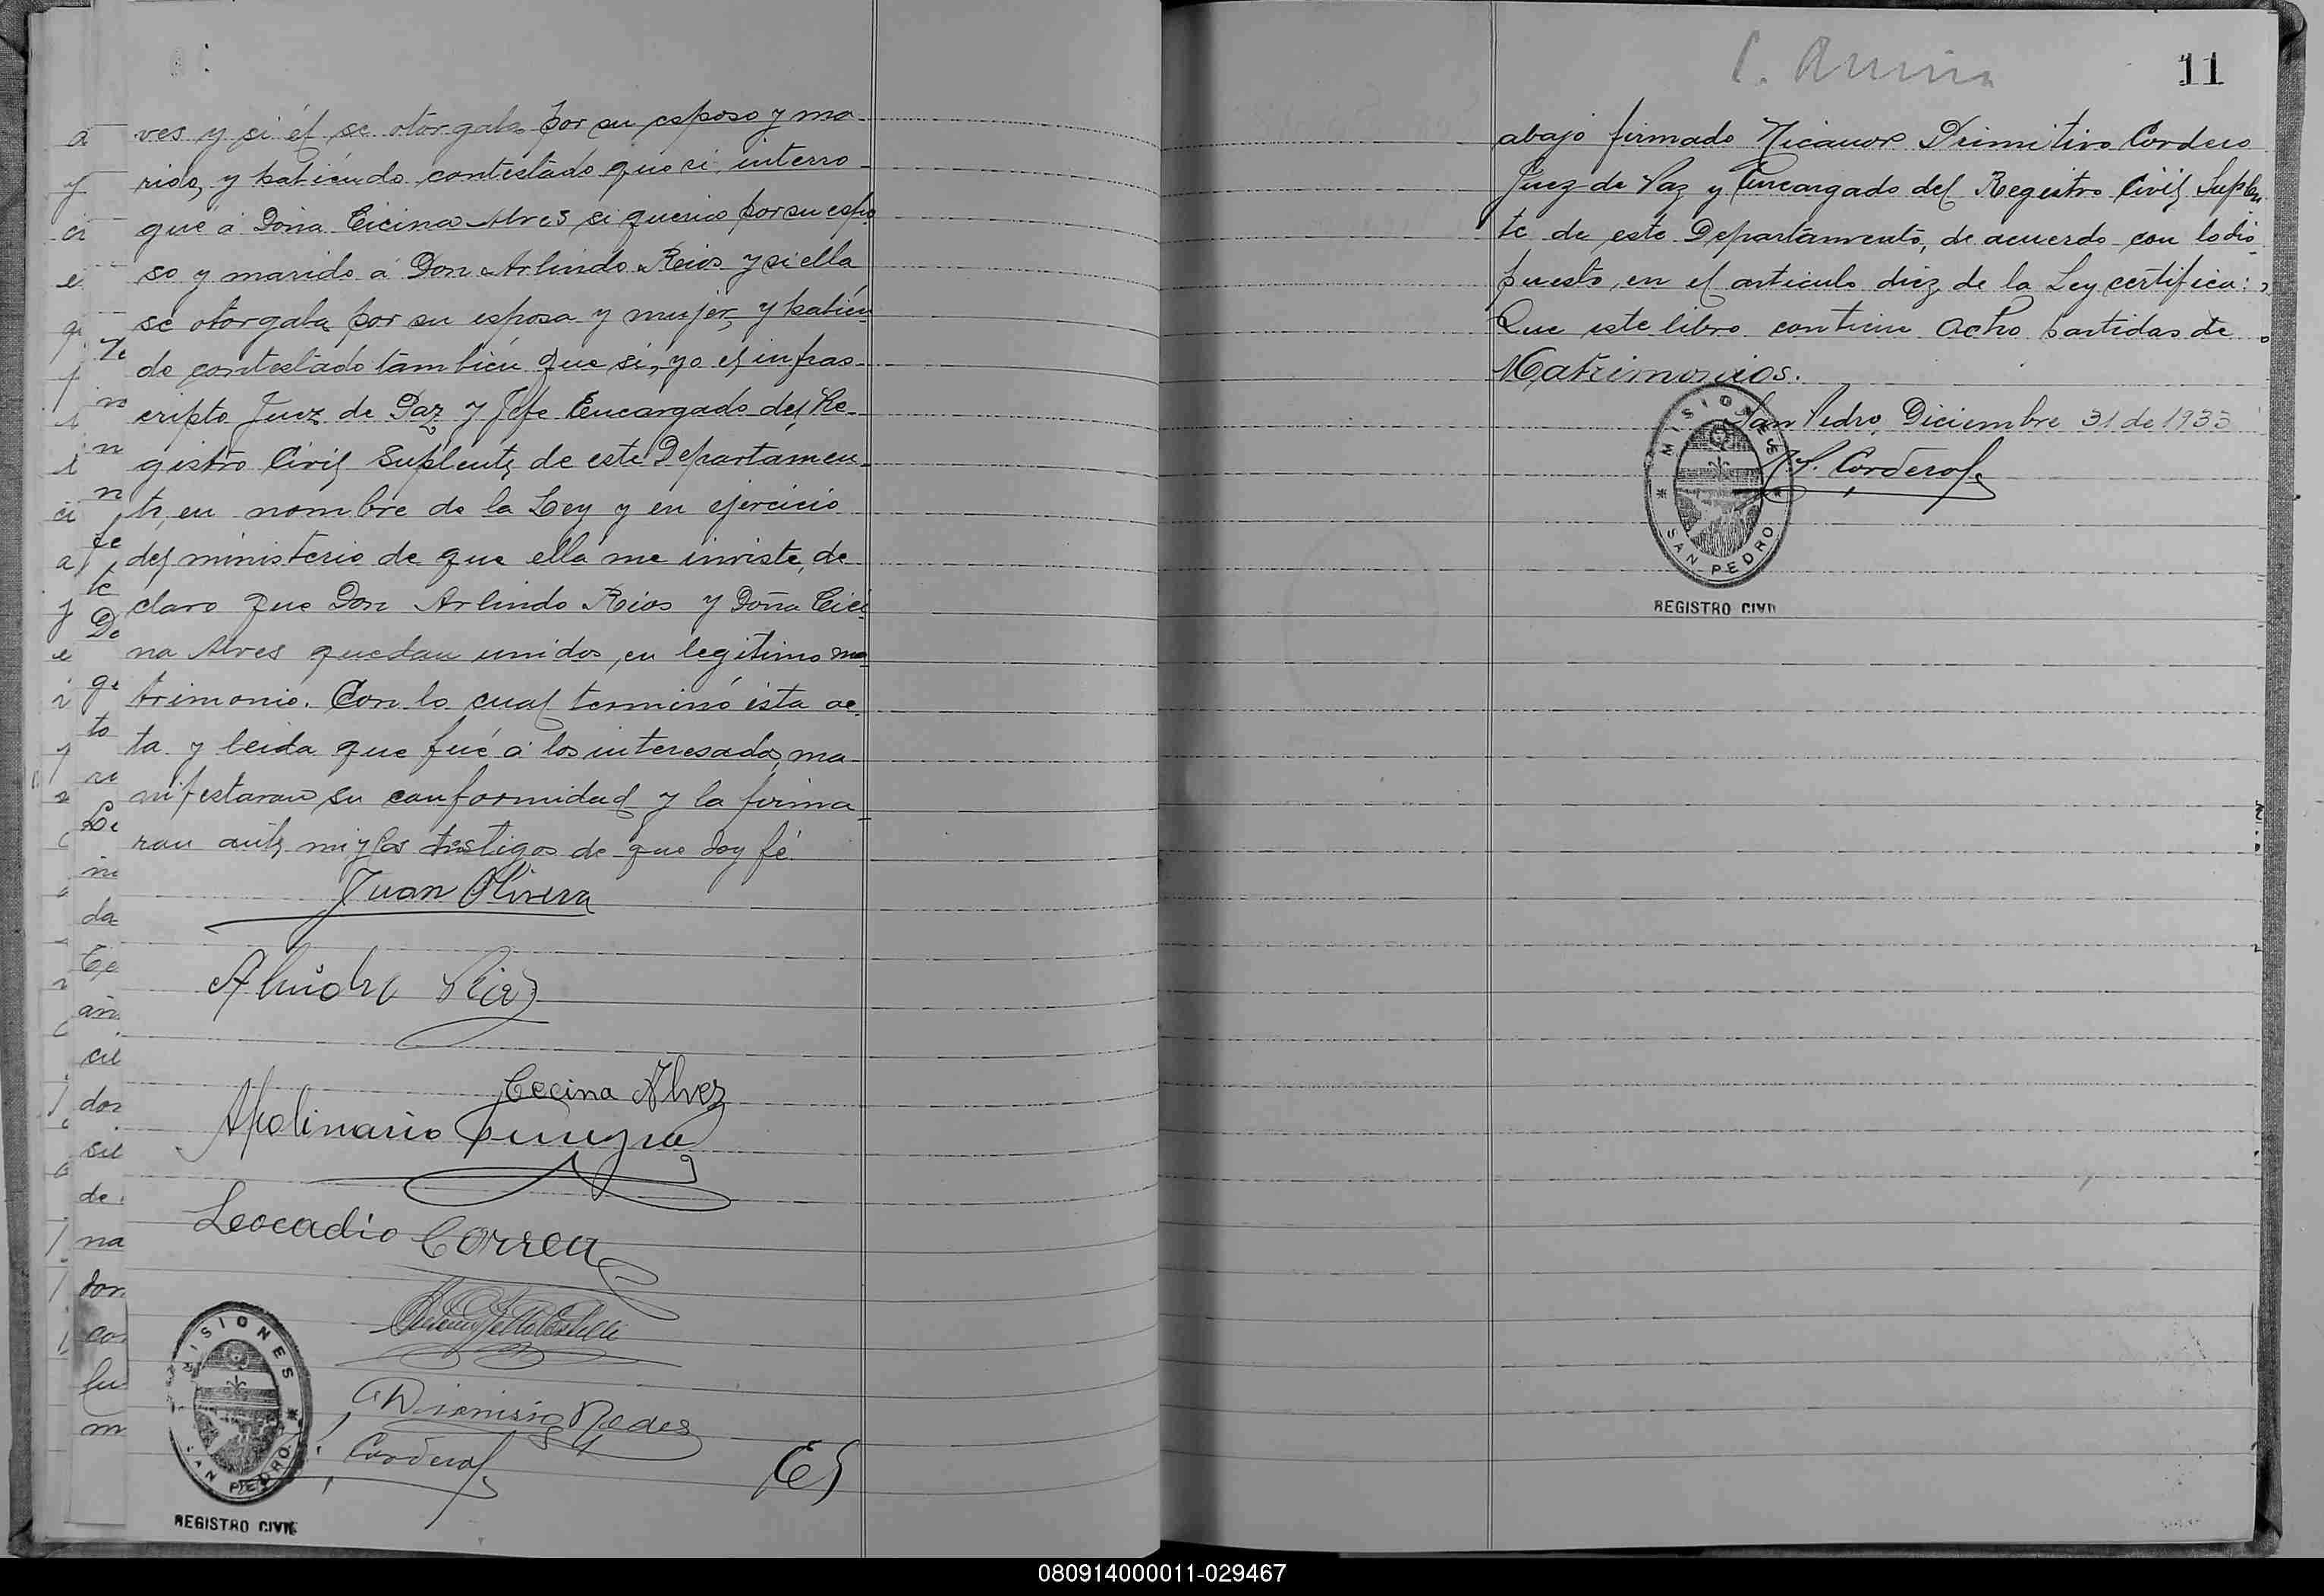 ves y si él se otorgaba por su esposo y ma-
rido, y habiendo contestado que si interro-
gué á Doña Cicina Alves si queria por su espo
so y marido á Don Arlindo Reios y si ella
se otorgaba por su esposa y mujer, y habien
do contestado tambien que si, yo el infras-
cripto Juez de Paz y Jefe Encargado del Re-
gistro Civil Suplente de este Departamen-
to, en nombre de la Ley y en ejercicio
del ministerio de que ella me inviste, de
claro que Don Arlindo Reios y Doña Cici
na Alves quedan unidos, en legitimo ma
trimonio. Con lo cual terminó ésta ac-
ta y leida que fué á los interesados, ma-
nifestaron su conformidad y la firma-
ran ante mi y los testigos de que doy fé.
Juan Olivera
Cecina Alvez
Apolinario
Leocadio Correa
Dionisio
Cordero
MISIONES
SAN PEDRO
REGISTRO CIVIL
11
abajo firmado Nicanor Primitivo Cordero
Juez de Paz y Encargado del Registro Civil Suplen
te de este Departamento, de acuerdo con lo dis-
puesto, en el articulo diez de la Ley certifica:
Que este libro contiene ocho partidas de
Matrimonios.
San Pedro, Diciembre 31 de 1933
N.P. Cordero
MISIONES
SAN PEDRO
REGISTRO CIVIL
080914000011-029467